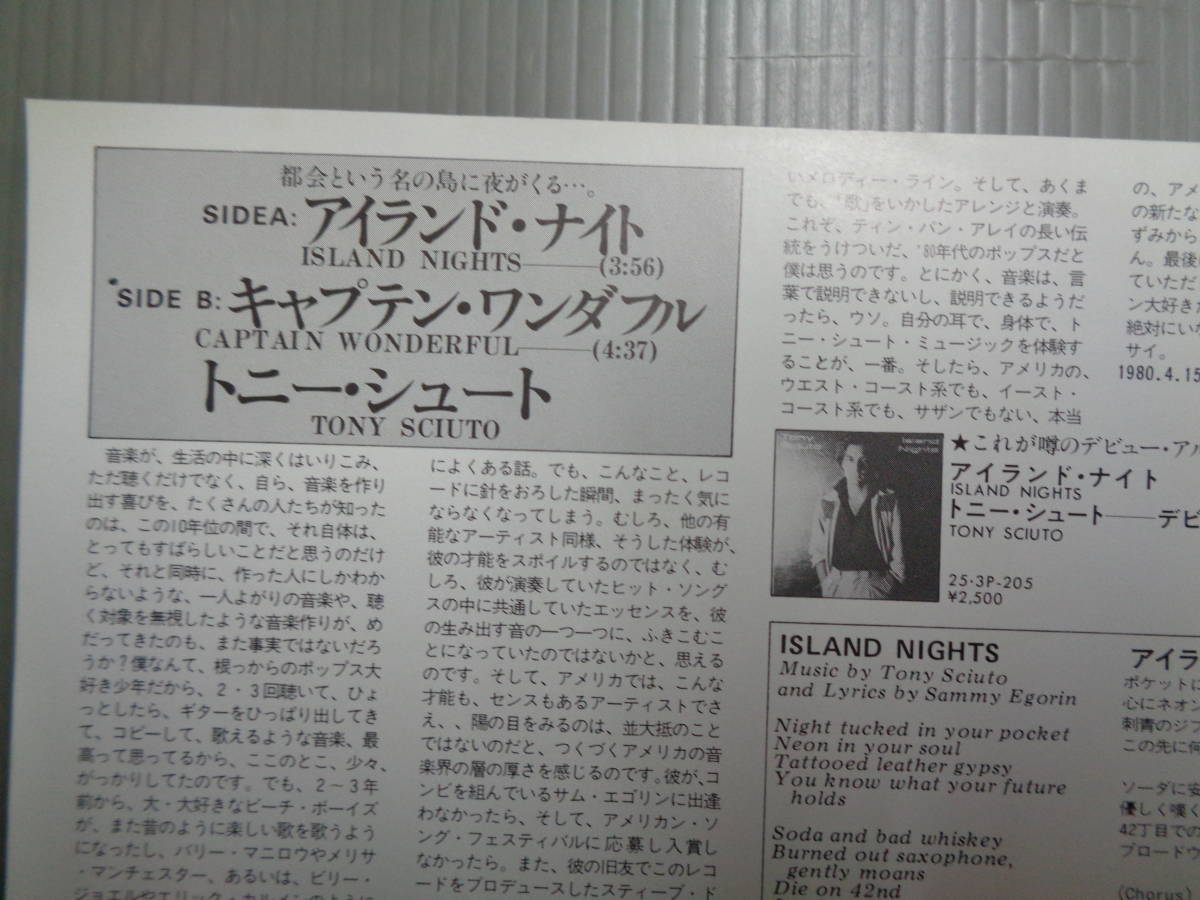 都会という名の島に夜がくる…。
SIDEA: アイランド・ナイト
ISLAND NIGHTS——(3:56)
SIDE B: キャプテン・ワンダフル
CAPTAIN WONDERFUL——(4:37)
トニー・シュート
TONY SCIUTO
音楽が、生活の中に深くはいりこみ、
ただ聴くだけでなく、自ら、音楽を作り
出す喜びを、たくさんの人たちが知った
のは、この10年位の間で、それ自体は、
とってもすばらしいことだと思うのだけ
ど、それと同時に、作った人にしかわか
らないような、一人よがりの音楽や、聴
く対象を無視したような音楽作りが、め
だってきたのも、また事実ではないだろ
うか？僕なんて、根っからのポップス大
好き少年だから、2・3回聴いて、ひょ
っとしたら、ギターをひっぱり出してき
て、コピーして、歌えるような音楽、最
高って思ってるから、ここのとこ、少々、
がっかりしてたのです。でも、2〜3年
前から、大・大好きなビーチ・ボーイズ
が、また昔のように楽しい歌を歌うよう
になったし、バリー・マニロウやメリサ
・マンチェスター、あるいは、ビリー・
ジョエルやエリック・カルメンのように
によくある話。でも、こんなこと、レコ
ードに針をおろした瞬間、まったく気に
ならなくなってしまう。むしろ、他の有
能なアーティスト同様、そうした体験が、
彼の才能をスポイルするのではなく、む
しろ、彼が演奏していたヒット・ソング
スの中に共通していたエッセンスを、彼
の生み出す音の一つ一つに、ふきこむこ
とになっていたのではないかと、思える
のです。そして、アメリカでは、こんな
才能も、センスもあるアーティストでさ
え、、陽の目をみるのは、並大抵のこと
ではないのだと、つくづくアメリカの音
楽界の層の厚さを感じるのです。彼が、コ
ンビを組んでいるサム・エゴリンに出逢
わなかったら、そして、アメリカン・ソ
ング・フェスティバルに応募し入賞し
なかったら。また、彼の旧友でこのレコ
ードをプロデュースしたスティーブ・ド
いメロディー・ライン。そして、あくま
でも、「歌」をいかしたアレンジと演奏。
これぞ、ティン・パン・アレイの長い伝
統をうけついだ、'80年代のポップスだと
僕は思うのです。とにかく、音楽は、言
葉で説明できないし、説明できるようだ
ったら、ウソ。自分の耳で、身体で、ト
ニー・シュート・ミュージックを体験す
ることが、一番。そしたら、アメリカの、
ウエスト・コースト系でも、イースト・
コースト系でも、サザンでもない、本当
の、アメ
の新たな
ずみから
ん。最後に
ていただ
ン大好きた
絶対にいな
サイ。
1980.4.15
★これが噂のデビュー・アル
アイランド・ナイト
ISLAND NIGHTS
トニー・シュート——デビ
TONY SCIUTO
25・3P-205
¥2,500
Tony
Island
Nights
ISLAND NIGHTS
Music by Tony Sciuto
and Lyrics by Sammy Egorin
Night tucked in your pocket
Neon in your soul
Tattooed leather gypsy
You know what your future
holds
Soda and bad whiskey
Burned out saxophone,
gently moans
Die on 42nd
アイラ
ポケットに
心にネオン
刺青のジプ
この先に何
ソーダに安
優しく嘆く
42丁目での
ブロードウ
(Chorus)